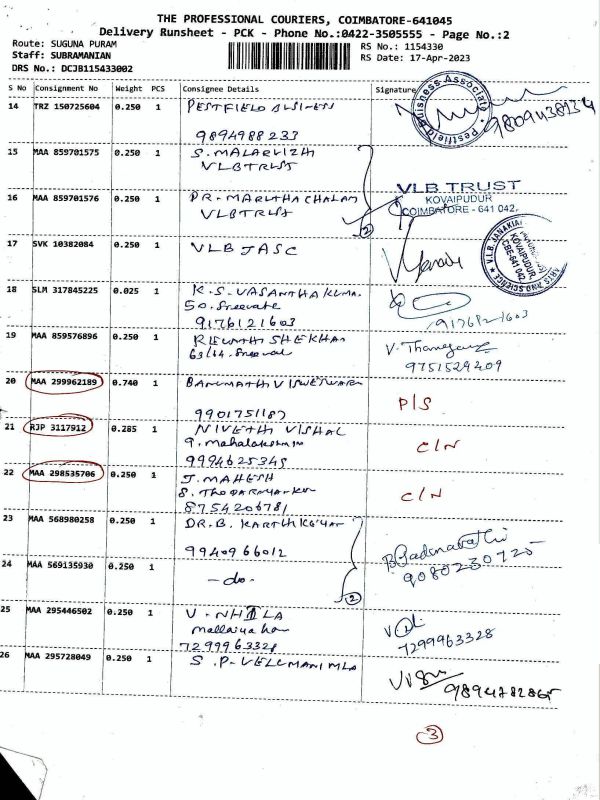 THE PROFESSIONAL COURIERS, COIMBATORE-641045
Delivery Runsheet - PCK - Phone No.:0422-3505555 - Page No.:2
Route: SUGUNA PURAM
Staff: SUBRAMANIAN
DRS No.: DCJB115433002
RS No.: 1154330
RS Date: 17-Apr-2023
S No Consignment No Weight PCS Consignee Details Signature
14 TRZ 150725604 0.250 1 PESTFIELD BUSINESS
9894988233
15 MAA 859701575 0.250 1 S. MALARVIZHI
VLB TRUST
16 MAA 859701576 0.250 1 DR. MARUTHACHALAM
VLB TRUST
2
VLB TRUST
KOVAIPUDUR
COIMBATORE - 641 042.
17 SVK 10382084 0.250 1 VLB JASC
18 SLM 317845225 0.025 1 K. S. VASANTHA KUMA.
50. Sreevats
9176121603
19 MAA 859576896 0.250 1 REVATHI SHEKHAR
63/14.
V. Thangaraj
9751529409
20 MAA 299962189 0.740 1 BANUMATHI VISWESWARA
9901751187
P/S
21 RJP 3117912 0.285 1 NIVETHI VISHAL
9. mahalakshmi
9994625345
C/N
22 MAA 298535706 0.250 1 J. MAHESH
8.
8754206781
C/N
23 MAA 568980258 0.250 1 DR. B. KARTHIKEYAN
9940966012
24 MAA 569135930 0.250 1 - do -
2
9080230725
25 MAA 295446502 0.250 1 V. NHILA
7299963328
7299963328
26 MAA 295728049 0.250 1 S. P. VELUMANI MLA
9894782865
3